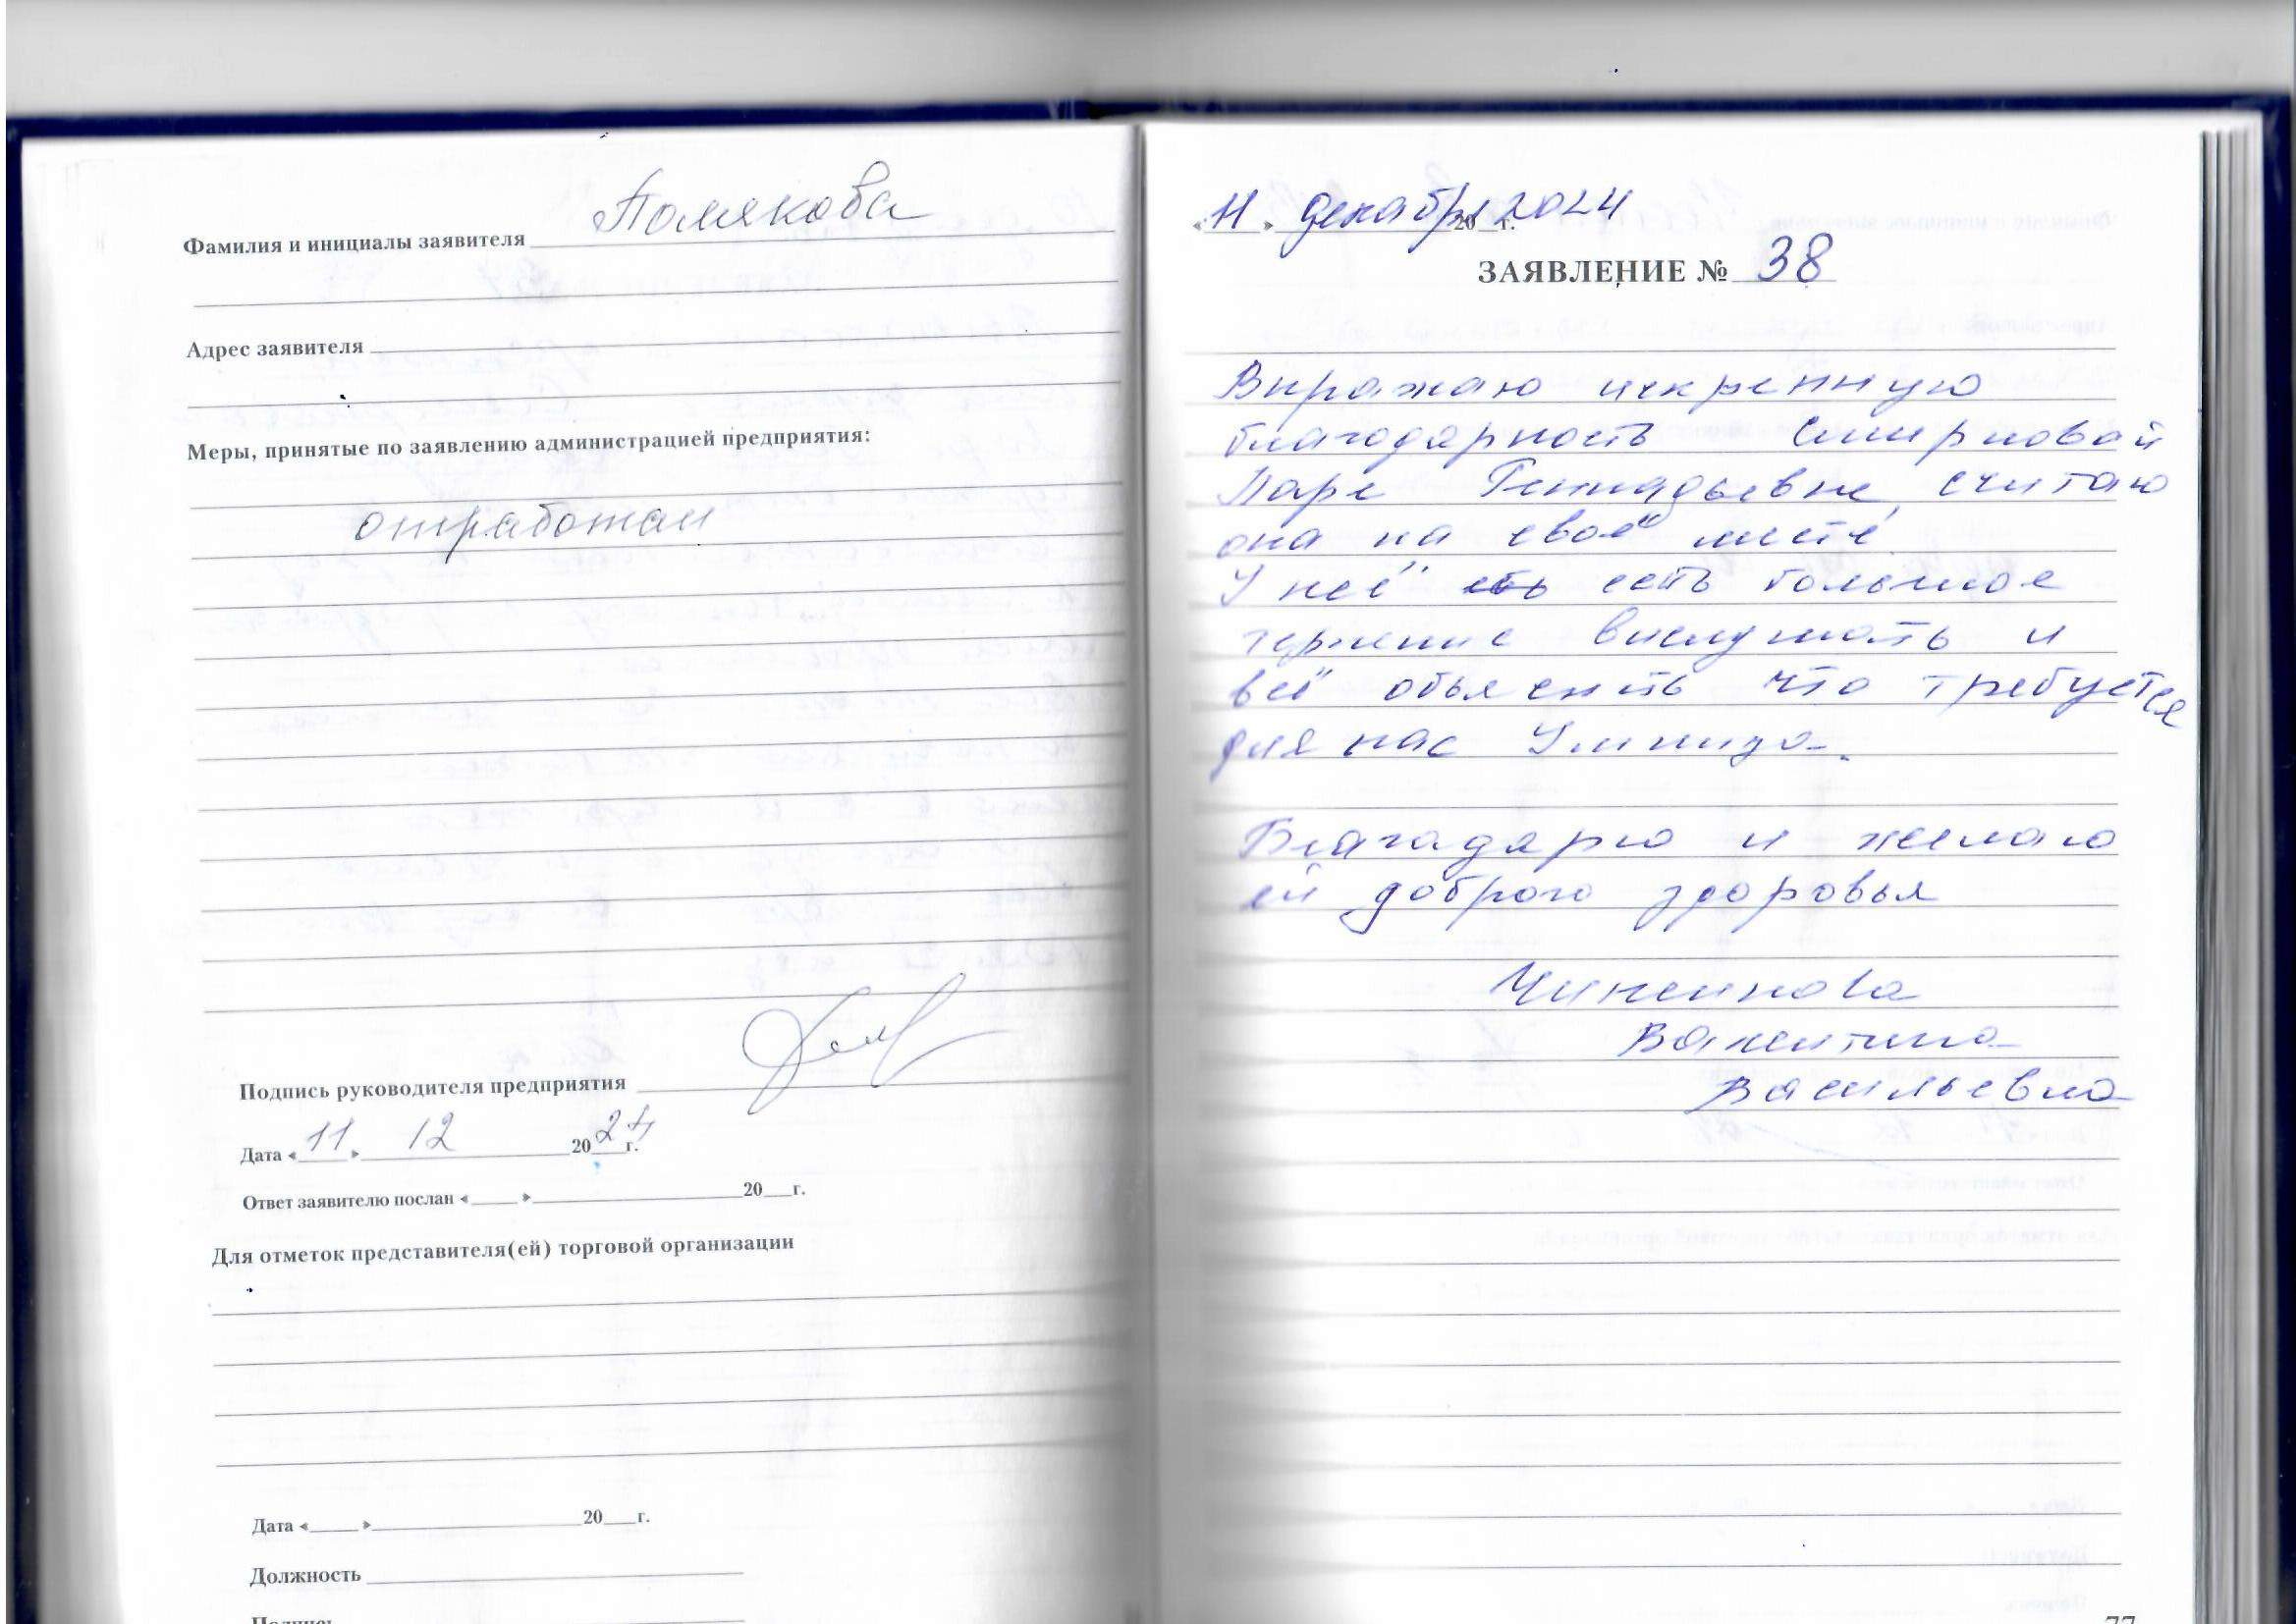 Фамилия и инициалы заявителя Полякова
Адрес заявителя
Меры, принятые по заявлению администрацией предприятия:
отработан
Подпись руководителя предприятия
Дата « 11 » 12 2024 г.
Ответ заявителю послан « » 20 г.
Для отметок представителя(ей) торговой организации
Дата « » 20 г.
Должность
Подпись
« 11 » декабря 20 2024 г.
ЗАЯВЛЕНИЕ № 38
Выражаю искренную
благодарность Смирновой
Ларе Геннадьевне, считаю
она на своё месте
У неё есть большое
терпение выслушать и
всё обьяснить что требуется
для нас
Благадарю и желаю
ей доброго здоровья
Валентина
Васильевна
77